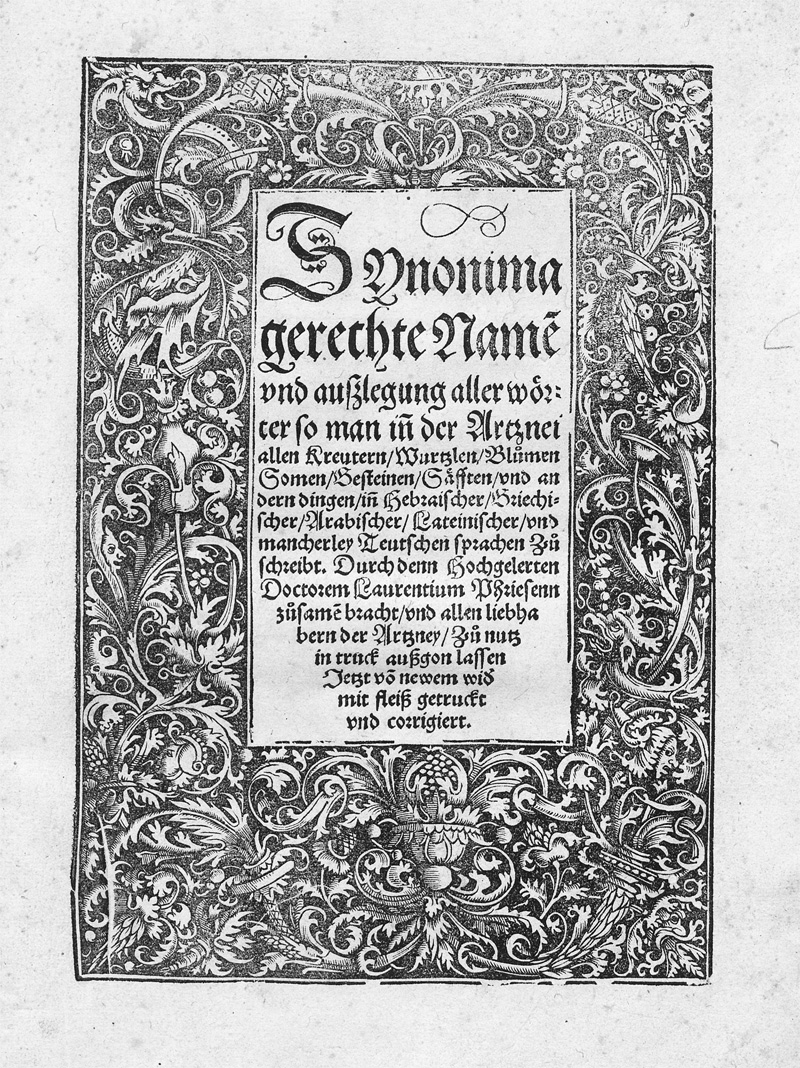 Synonima
gerechte Namē
vnd außlegung aller wör⸗
ter so man in̄ der Artznei
allen Kreutern/Wurtzlen/Blůmen
Somen/Gesteinen/Säfften/vnd an
dern dingen/in̄ Hebraischer/Griechi⸗
scher/Arabischer/Lateinischer/vnd
mancherley Teutschen sprachen Zů
schreibt. Durch denn Hochgelerten
Doctorem Laurentium Phriesenn
zůsamē bracht/vnd allen liebha
bern der Artzney/Zů nutz
in truck außgon lassen
Jetzt vō newem wid
mit fleiß getruckt
vnd corrigiert.